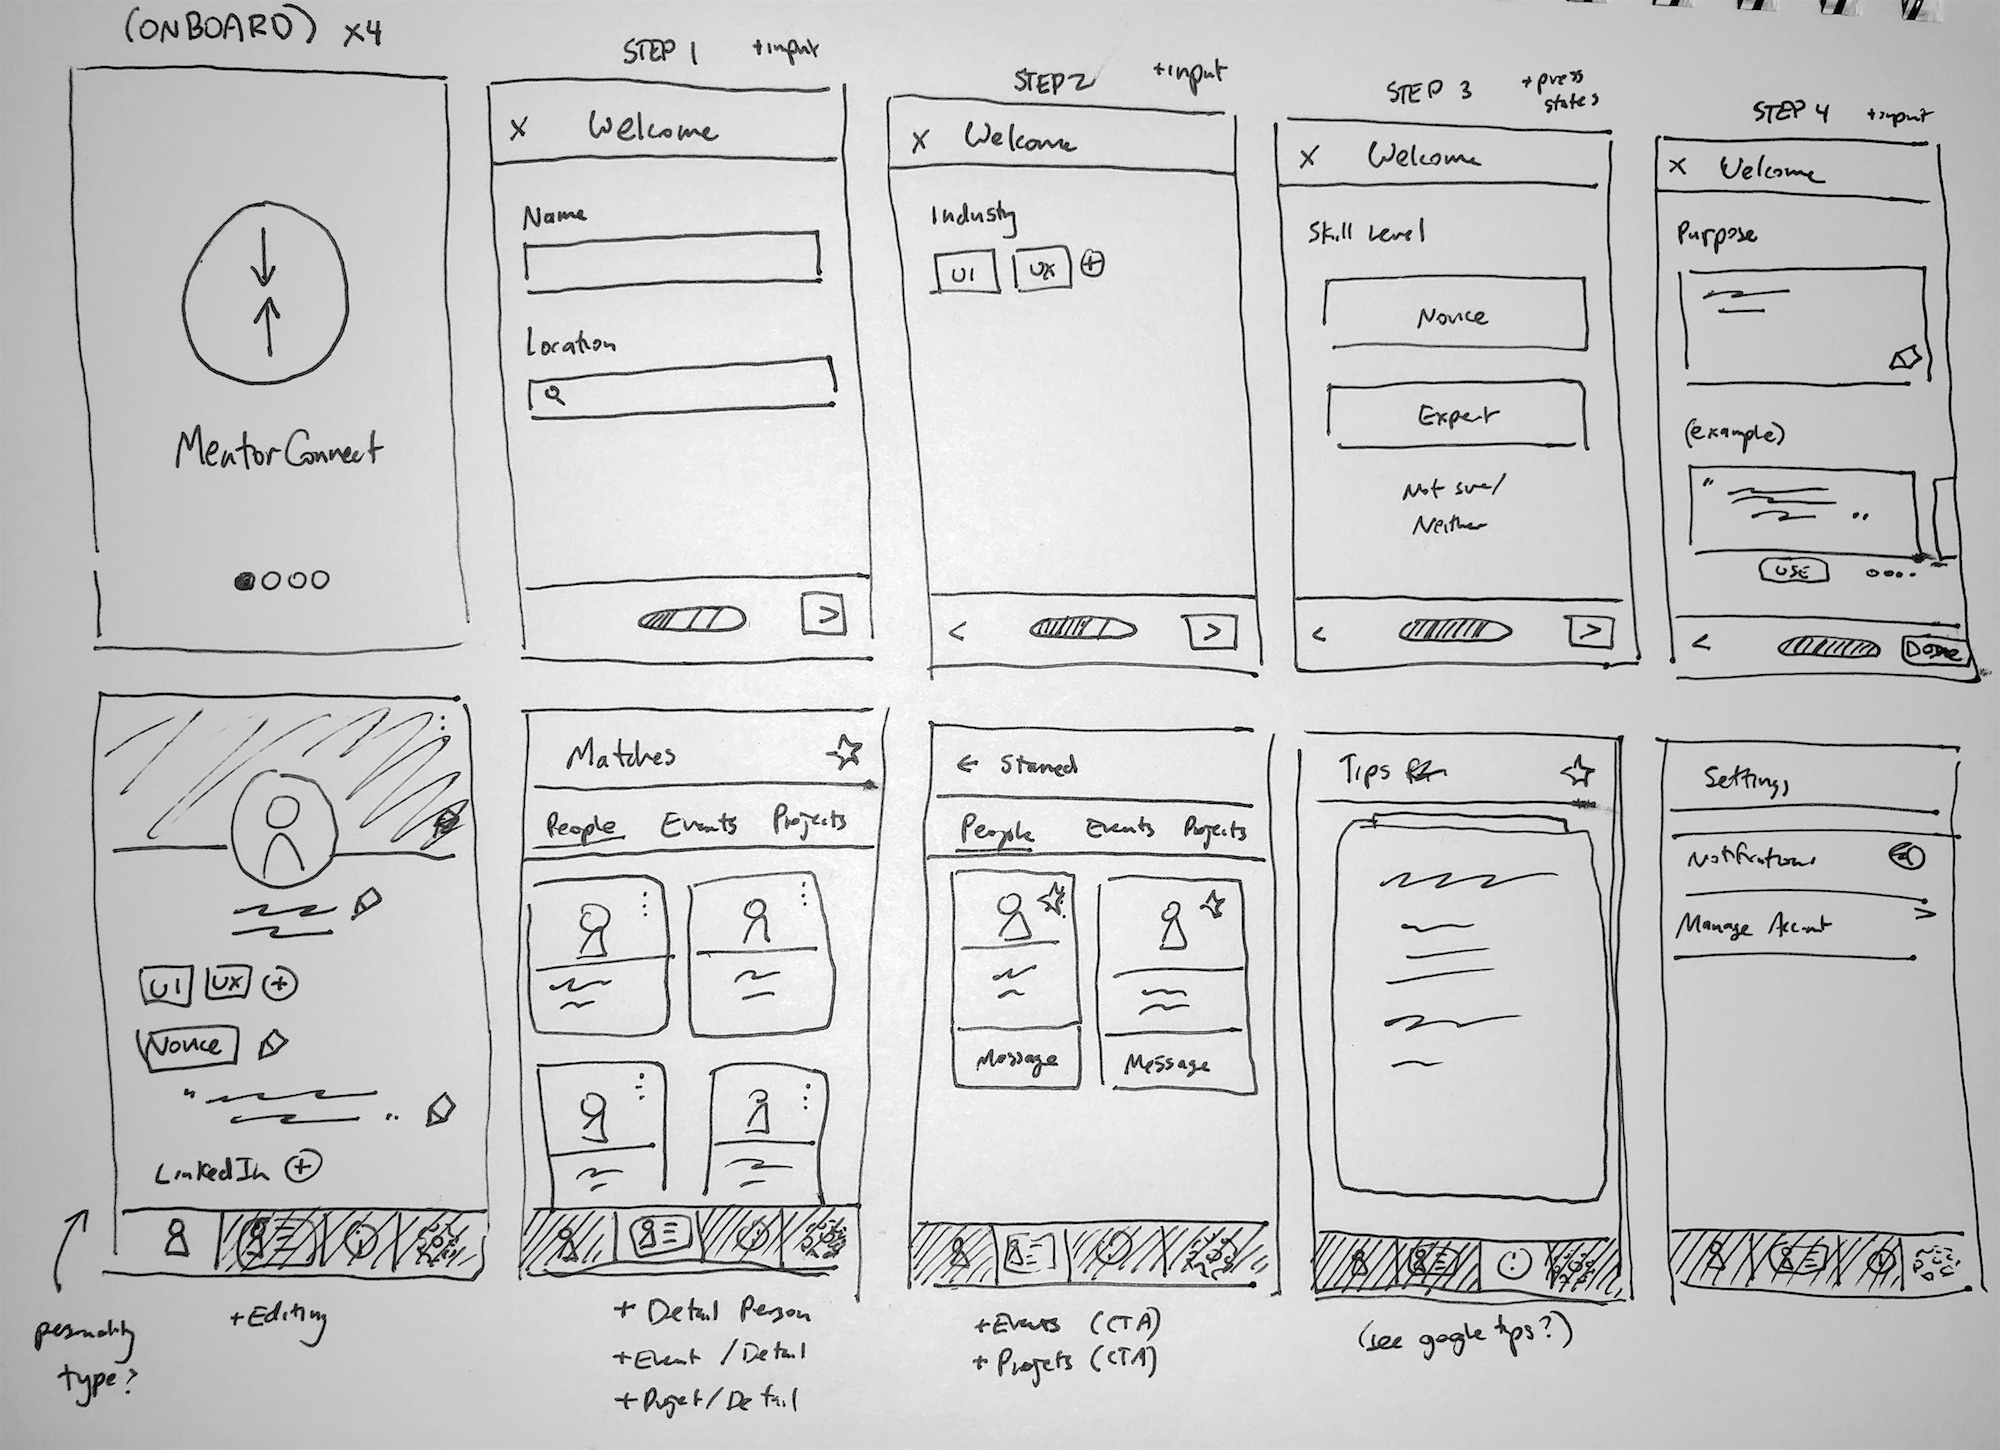 (ONBOARD) x4
STEP 1 +input
STEP 2 +input
STEP 3 +press
states
STEP 4 +input
MentorConnect
X Welcome
Name
Location
>
X Welcome
Industy
UI UX +
< >
X Welcome
Skill Level
Novice
Expert
Not sure/
Neither
< >
X Welcome
Purpose
(example)
" "
USE
< DONE
UI UX +
Novice
" "
LinkedIn +
personality
type?
+Editing
Matches
People Events Projects
+ Detail Person
+Event /Detail
+Projet/Detail
← Starred
People Events Projects
Message Message
+Events (CTA)
+ Projets (CTA)
Tips
(see google tips?)
Settings
Notifications
Manage Account >